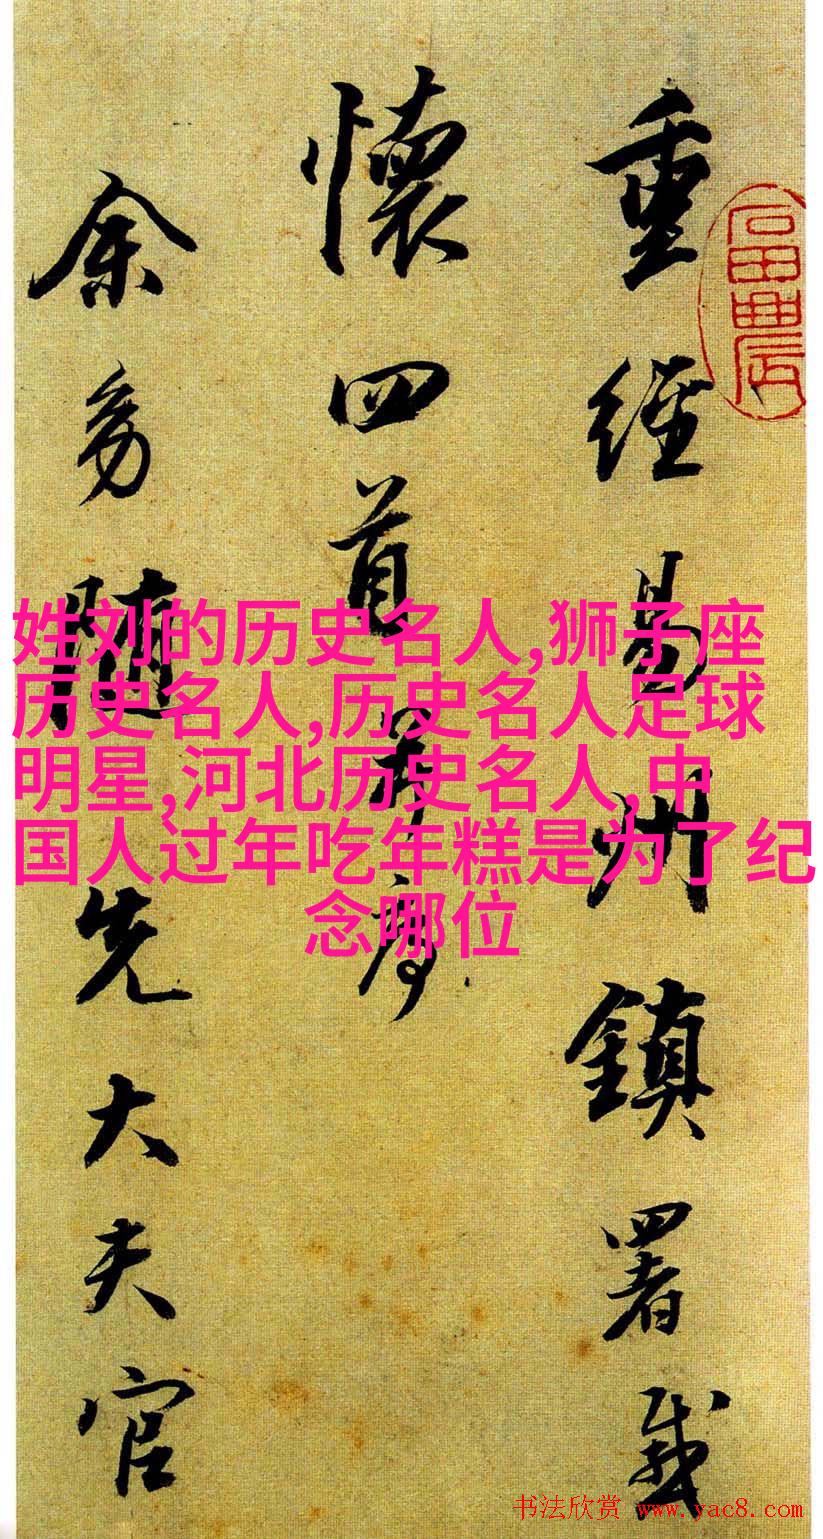 重經易州鎮署感
懷四首并序
余幼隨先大夫官
姓刘的历史名人,狮子座
历史名人,历史名人足球
明星,河北历史名人,中
国人过年吃年糕是为了纪
念哪位
书法欣赏 www.yac8.com